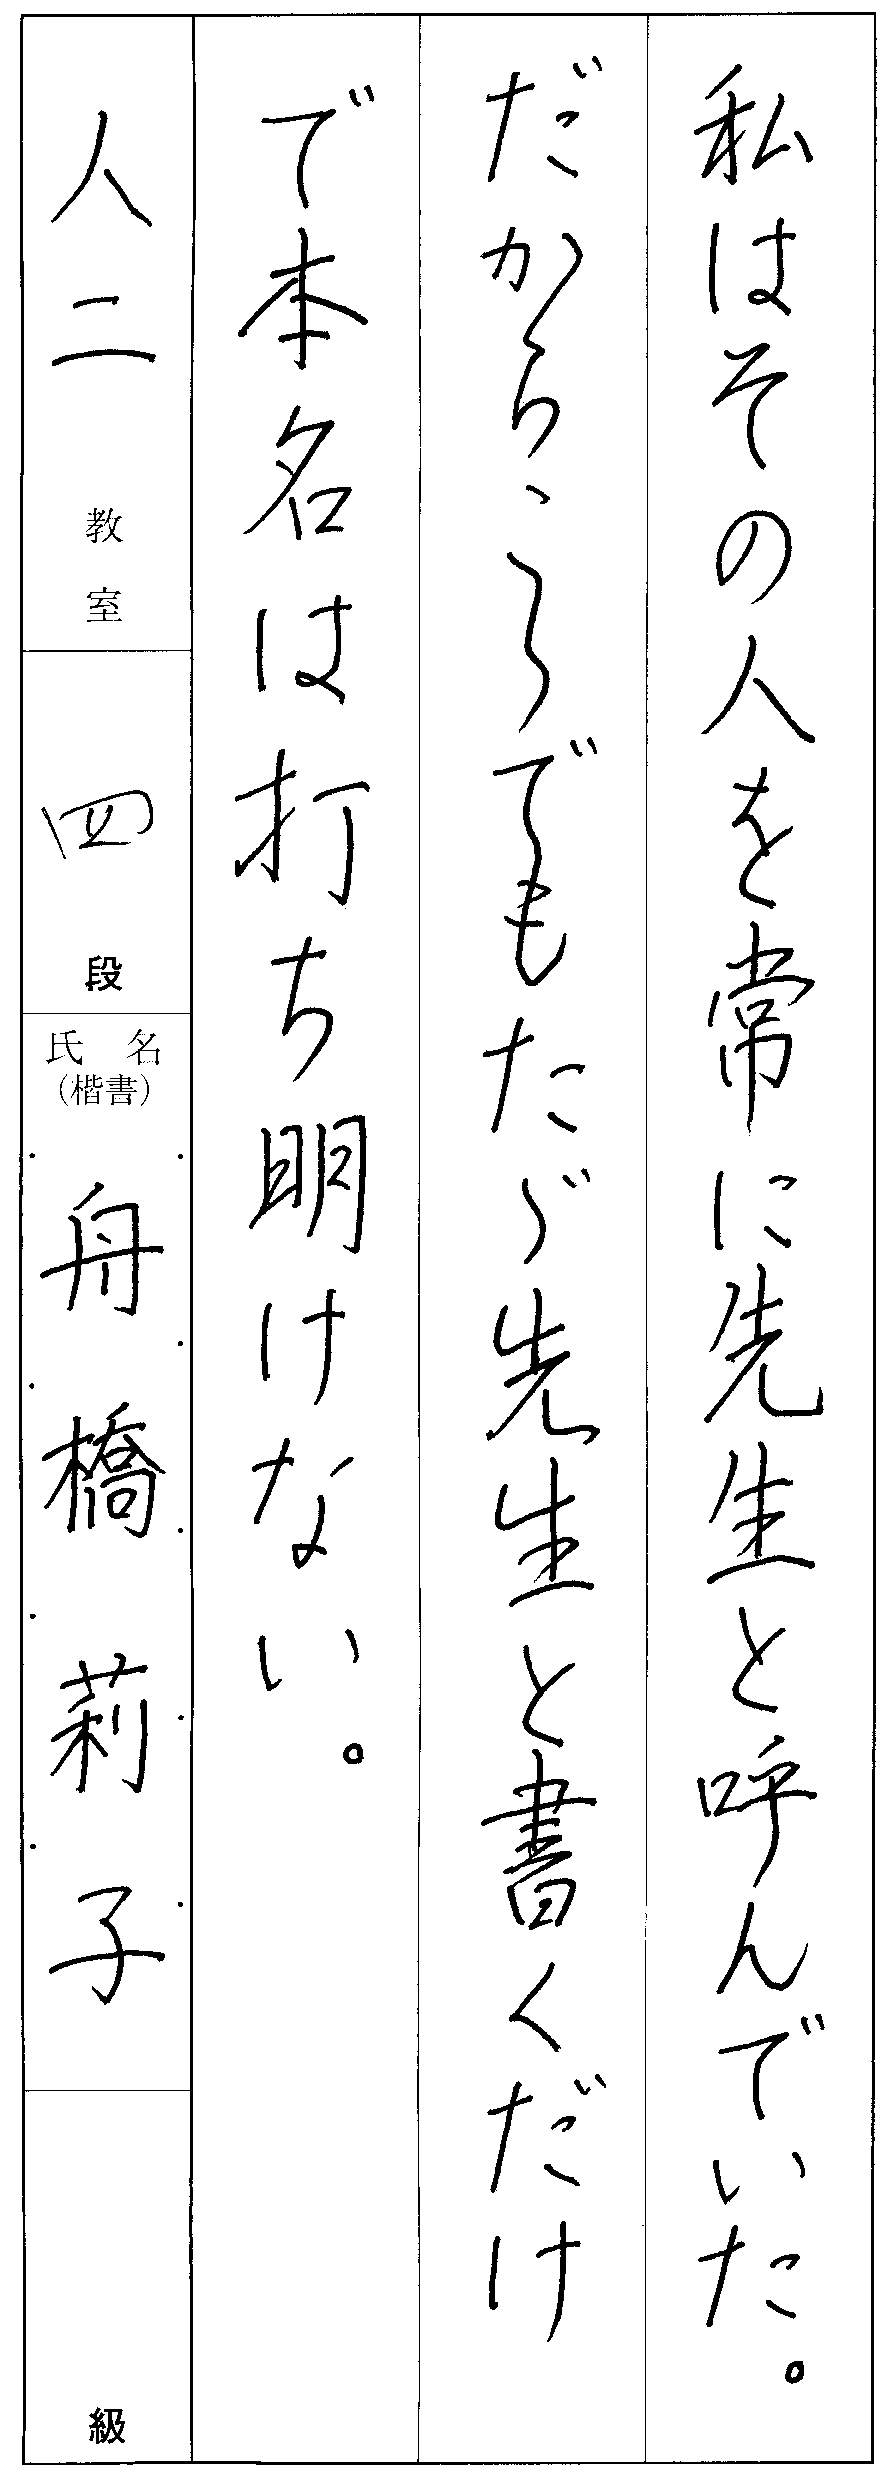 私はその人を常に先生と呼んでいた。
だから、こゝでもたゞ先生と書くだけ
で本名は打ち明けない。
人二 教室
四 段
氏名
(楷書)
舟橋莉子
級